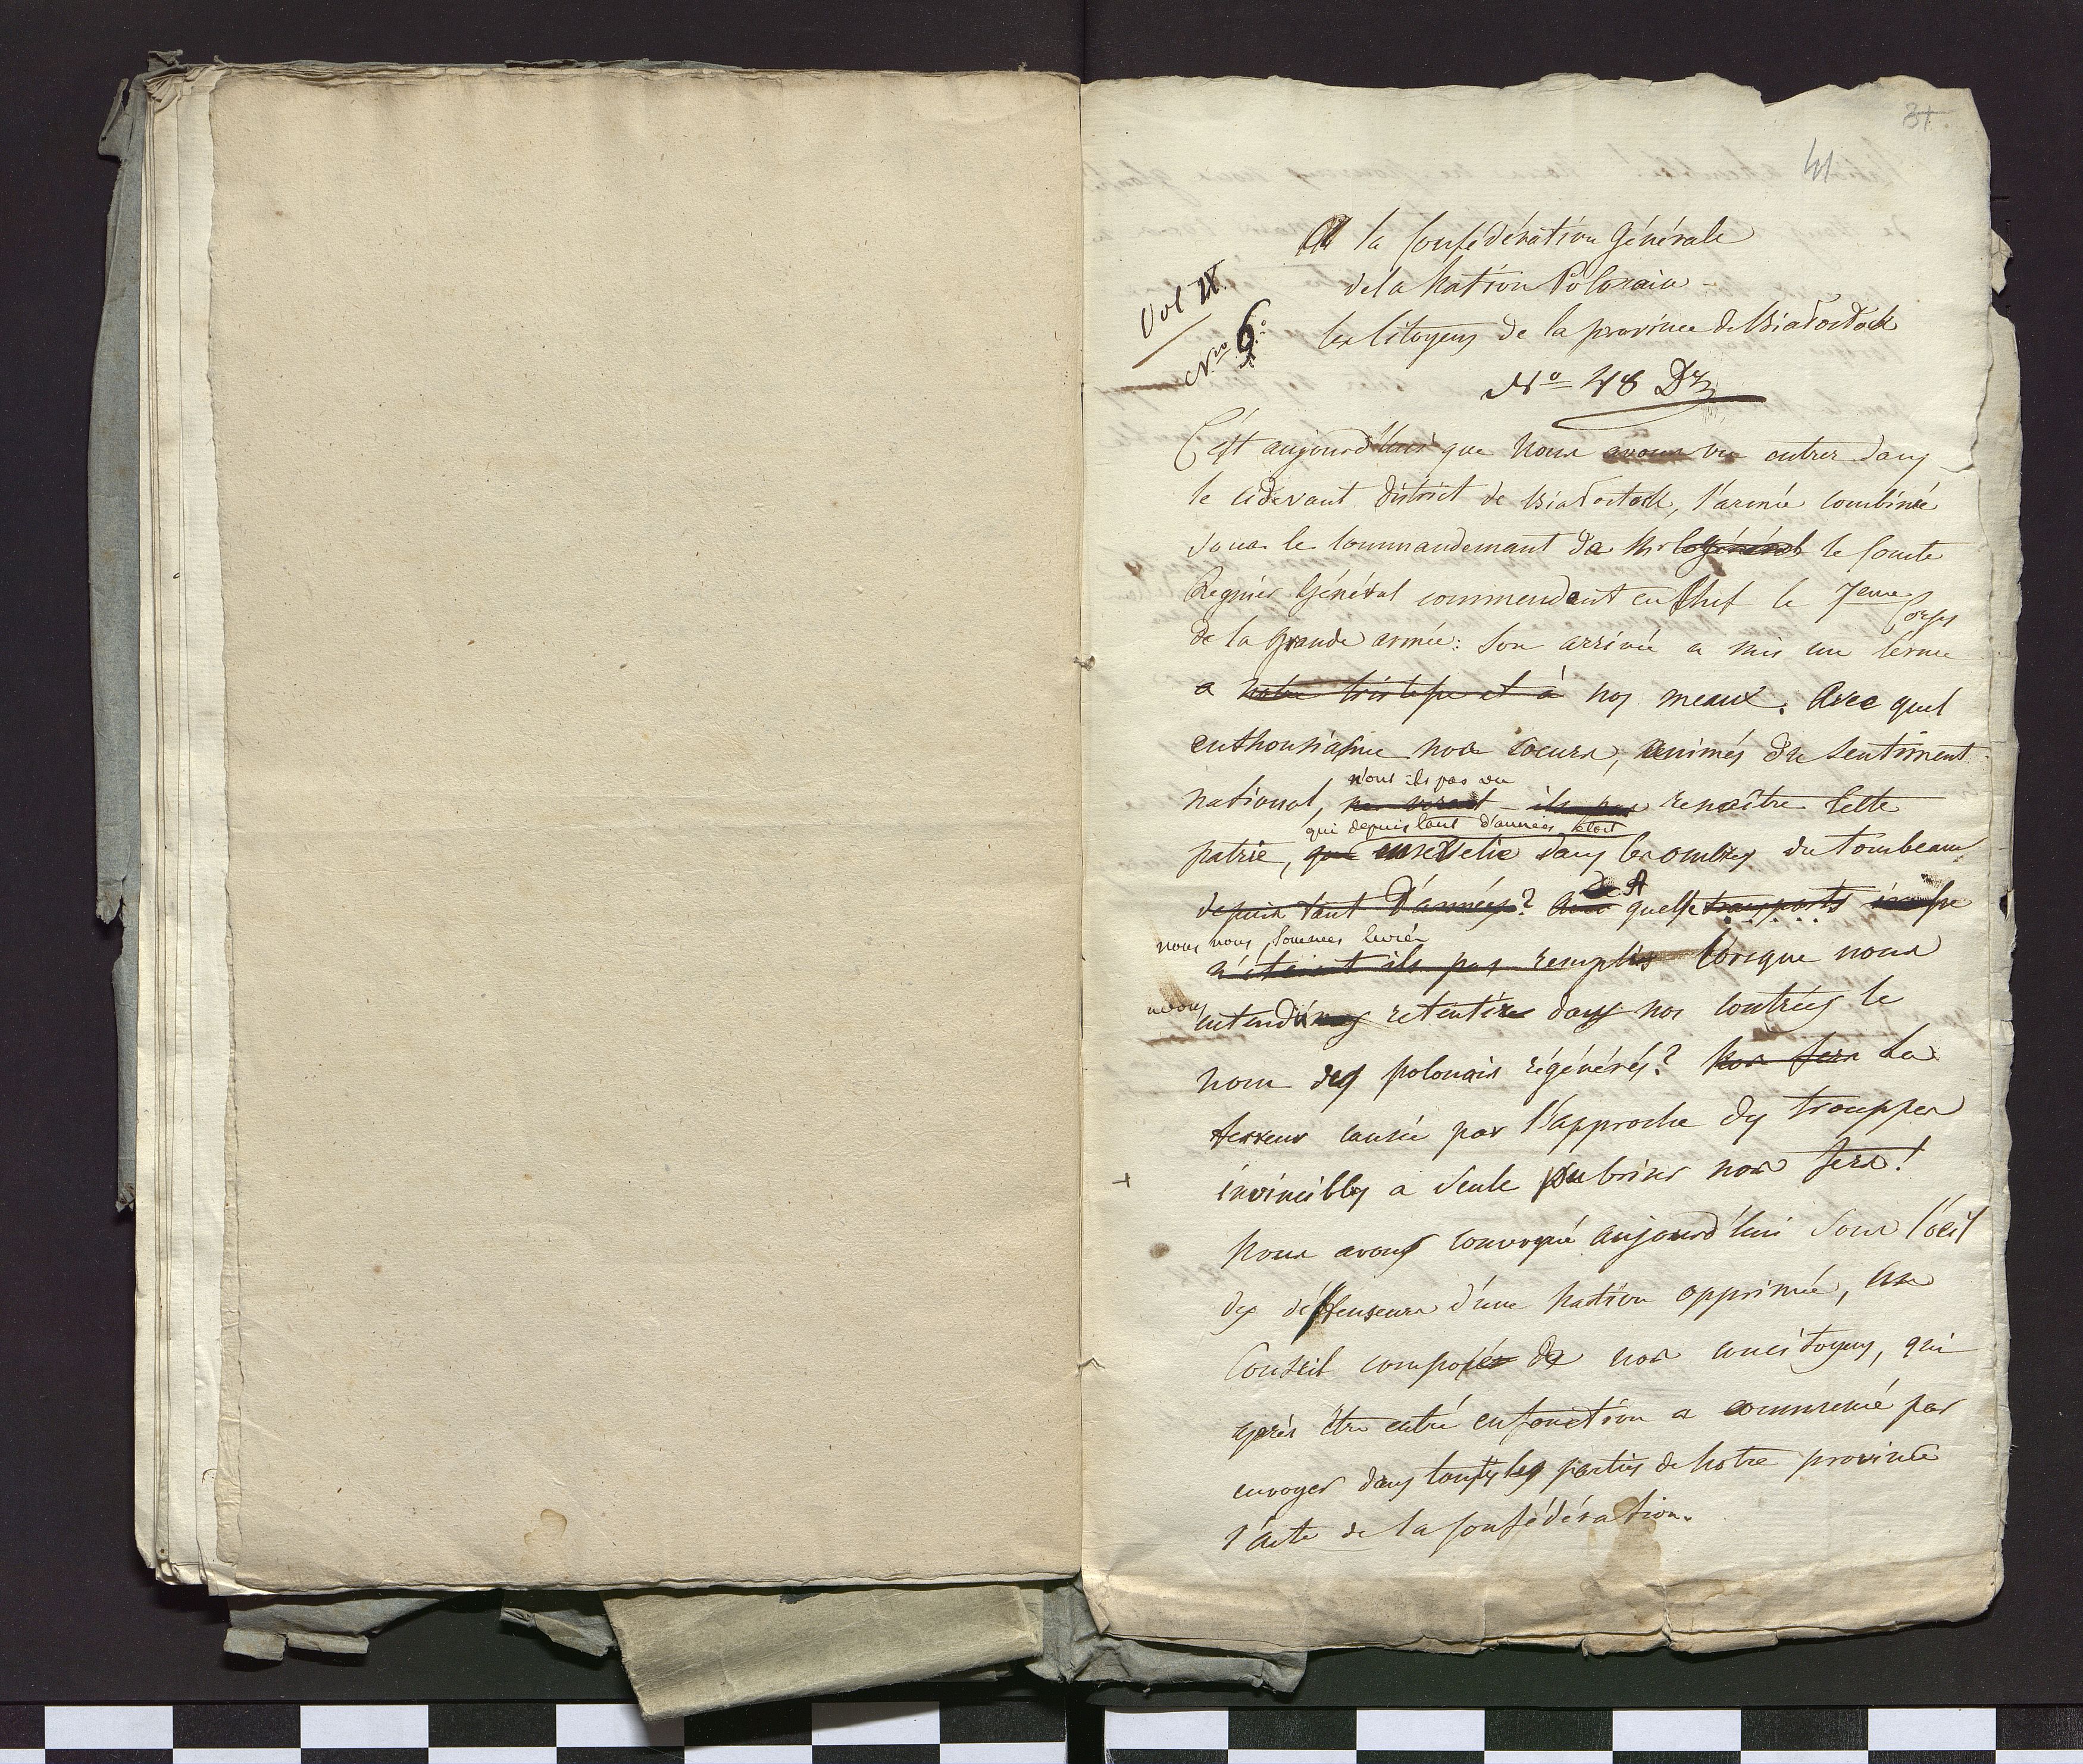 41
A la Confédération Générale
de la Nation Polonaise
les Citoyens de la province de Białostock
Vol IX.
Nro 6.
No 48 Dz
C'est aujourd'hui que nous avons vu entrer dans
le cidevant district de Białostock, l'armée combinée
sous le commandemant de Mr le Général le Comte
Regnier Général commendant en Chef le 7eme Corps
de la grande armée: Son arrivée a mis un terme
a notre tristesse et à nos meaux. Avec quel
enthousiasme nos coeurs, animés du sentiment
n'ont ils pas vu
national, ne virent-ils pas renaître cette
qui depuis tant d'années étoit
patrie, que ensevelie dans les ombres du tombeau
depuis tant d'années? Avec quelle transports
nous nous sommes livrés
n'étaient ils pas remplis lorsque nous
avons
entendu retentir dans nos contrées le
nom des polonais régénérés? Nos fers La
terreur causée par l'approche des trouppes
invincibles a seule pu briser nos fers!
Nous avons convoqué aujourd'hui sous l'oeil
des deffenseurs d'une Nation opprimée, un
Conseil composé de nos concitoyens, qui
après être entré en fonction a commencé par
envoyer dans toutes les parties de notre province
l'acte de la Confédération.